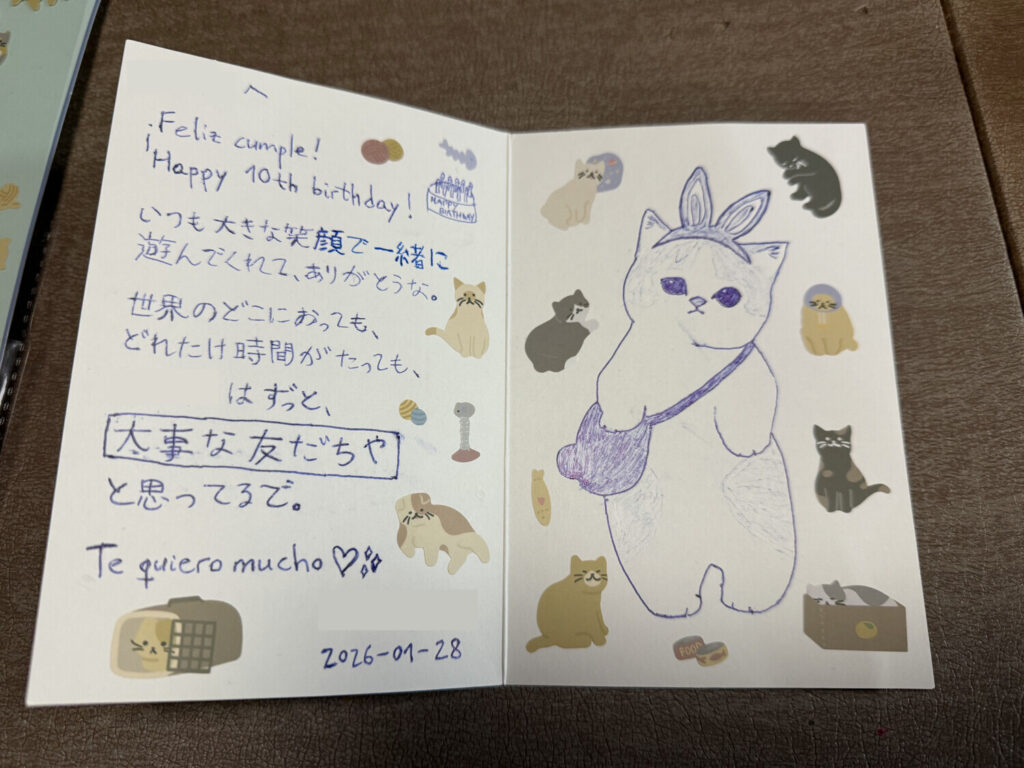 へ
¡Feliz cumple!
Happy 10th birthday!
HAPPY
BIRTHDAY
いつも大きな笑顔で一緒に
遊んでくれて、ありがとうな。
世界のどこにおっても、
どれたけ時間がたっても、
はずっと、
大事な友だちや
と思ってるで。
Te quiero mucho♡
2026-01-28
FOOD